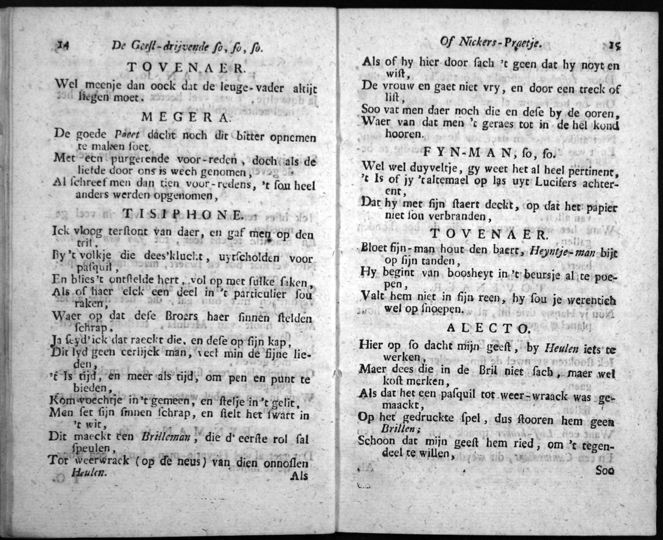 14 De Geest-drijvende so, so, so.
TOVENAER.
Wel meenje dan oock dat de leuge-vader altijt
liegen moet.
MEGERA.
De goede Paert dacht noch dit bitter opnemen
te maken soet.
Met een purgerende voor-reden, doch als de
liefde door ons is wech genomen,
Al schreef men dan tien voor-redens, 't sou heel
anders werden opgenomen,
TISIPHONE.
Ick vloog terstont van daer, en gaf men op den
tril,
By't volkje die dees'klucht, uytscholden voor
pasquil,
En blies't ontstelde hert, vol op met sulke saken,
Als of haer elck een deel in 't particulier sou
raken,
Waer op dat dese Broers haer sinnen stelden
schrap,
Ja seyd'ick dat raeckt die, en dese op sijn kap,
Dit lyd geen eerlijck man, veel min de fijne lie-
den,
't Is tijd, en meer als tijd, om pen en punt te
bieden,
Kom voechtje in't gemeen, en stelje in't gelit,
Men set sijn sinnen schrap, en stelt het swart in
't wit,
Dit maeckt een Brilleman, die d' eerste rol sal
speulen,
Tot weerwrack (op de neus) van dien onnoslen
Heulen.
Als
Of Nickers-Praetje. 15
Als of hy hier door sach 't geen dat hy noyt en
wist,
De vrouw en gaet niet vry, en door een treck of
list,
Soo vat men daer noch die en dese by de ooren,
Waer van dat men 't geraes tot in de hel kond
hooren.
FYN-MAN, so, so.
Wel wel duyveltje, gy weet het al heel pertinent,
't Is of jy 'taltemael op las uyt Lucifers achter-
ent,
Dat hy met sijn staert deckt, op dat het papier
niet sou verbranden,
TOVENAER.
Bloet fijn-man hout den baert, Heyntje-man bijt
op sijn tanden,
Hy begint van boosheyt in 't beursje al te poe-
pen,
Valt hem niet in sijn reen, hy sou je werentich
wel op snoepen.
ALECTO.
Hier op so dacht mijn geest, by Heulen iets te
werken,
Maer dees die in de Bril niet sach, maer wel
kost merken,
Als dat het een pasquil tot weer-wraack was ge-
maackt,
Op het gedruckte spel, dus stooren hem geen
Brillen;
Schoon dat mijn geest hem ried, om 't tegen-
deel te willen,
Soo